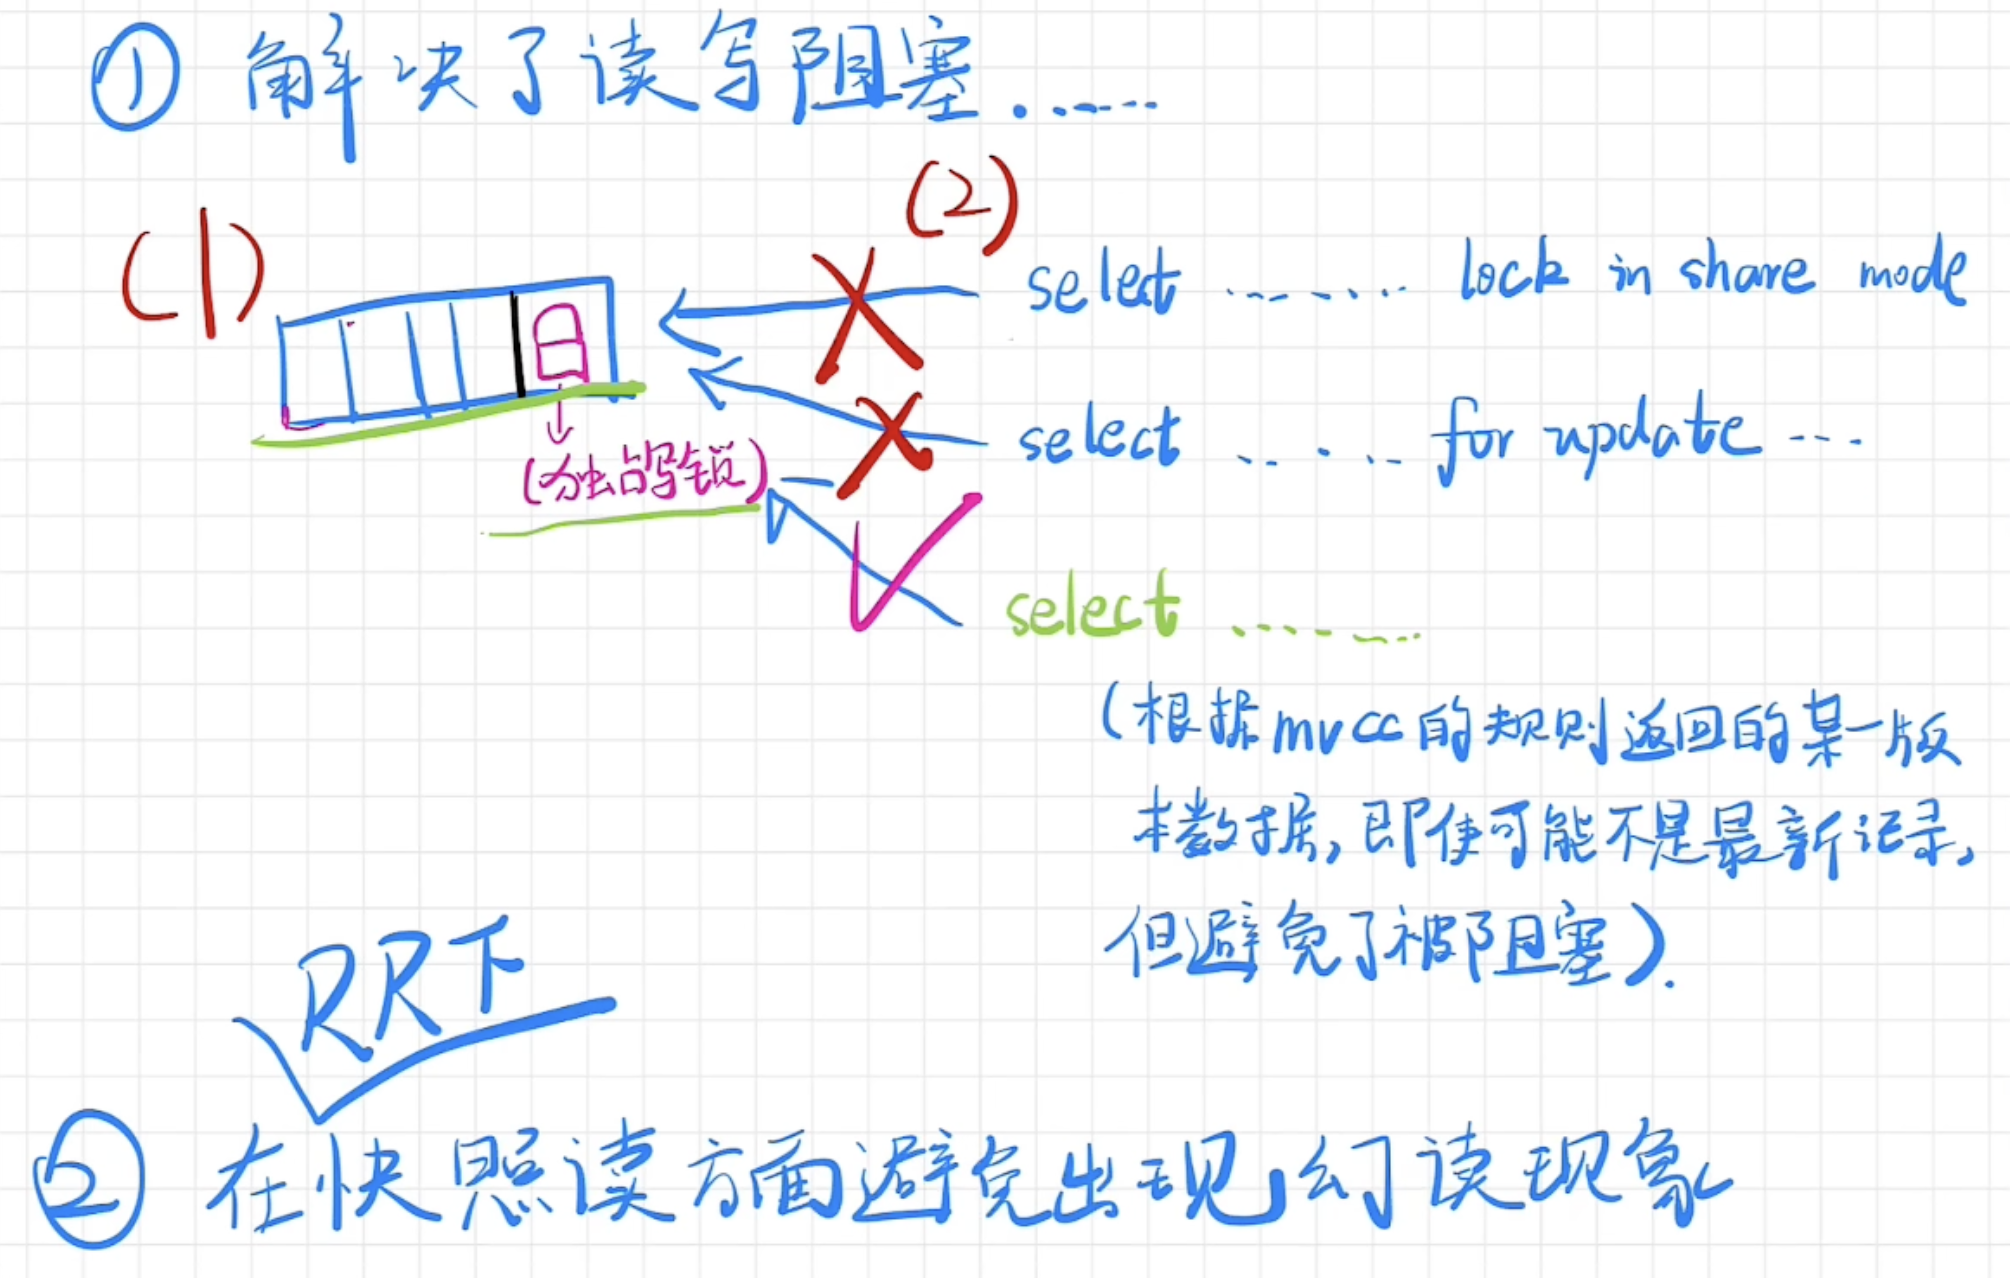 ① 解决了读写阻塞......
(1)
(2)
select ........ lock in share mode
select ...... for update ...
(独占写锁)
select ........
(根据mvcc的规则返回的某一版
本数据,即使可能不是最新记录,
但避免了被阻塞).
RR下
② 在快照读方面避免出现幻读现象